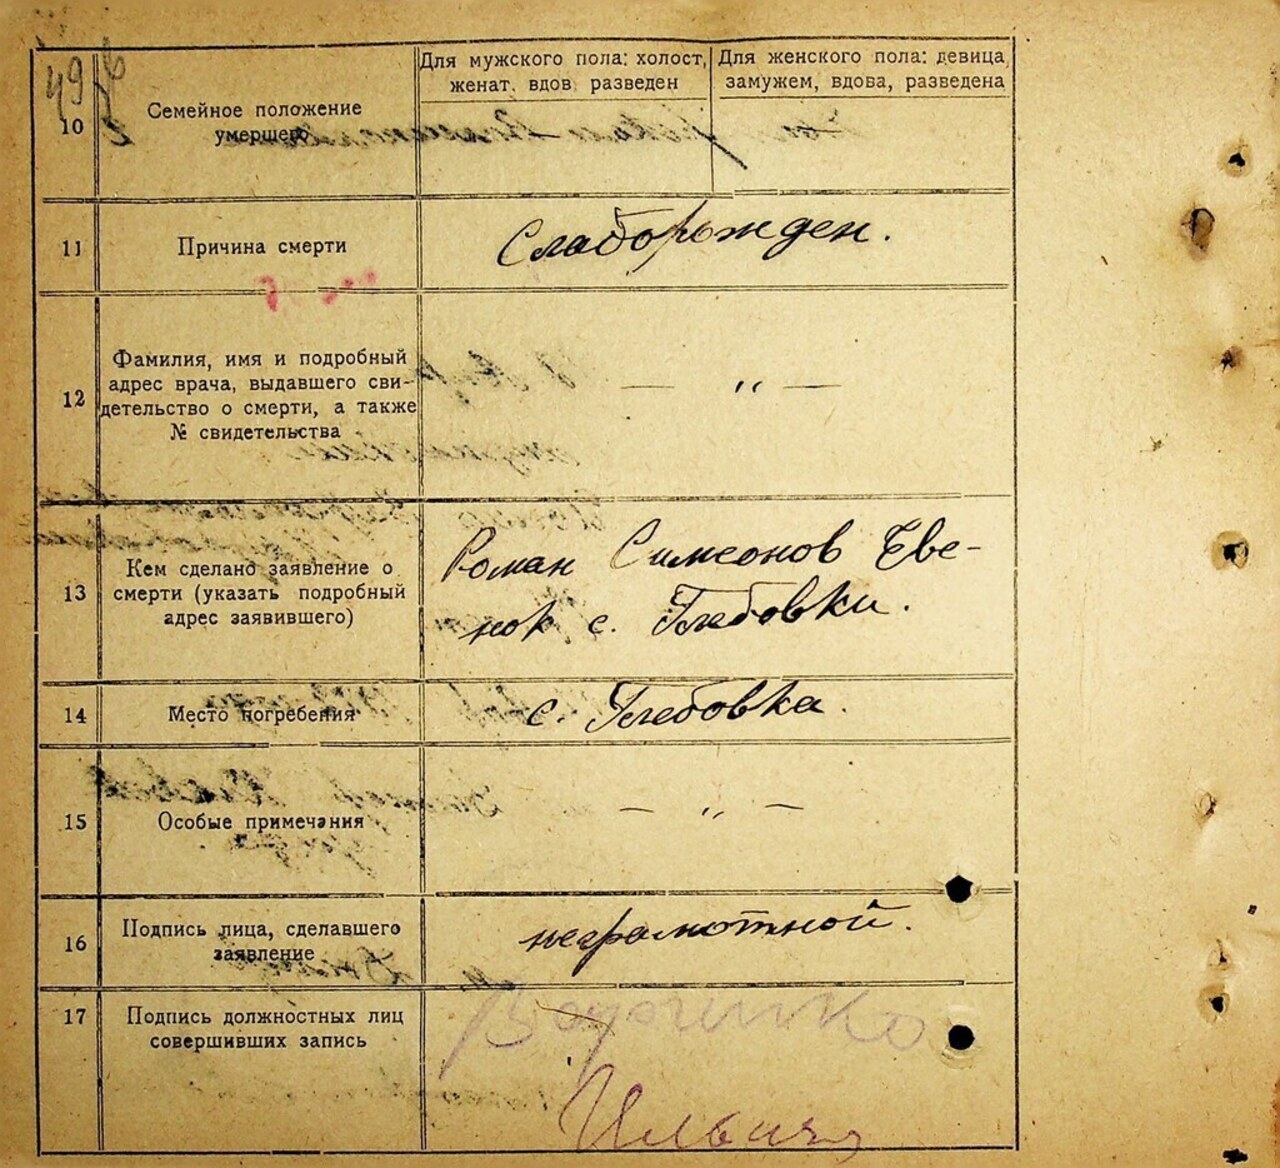 49
Для мужского пола: холост, женат. вдов разведен
Для женского пола: девица, замужем, вдова, разведена
10 Семейное положение умершего
11 Причина смерти
Слаборожден.
12 Фамилия, имя и подробный
адрес врача, выдавшего сви-
детельство о смерти, а также
№ свидетельства
— „ —
13 Кем сделано заявление о
смерти (указать подробный
адрес заявившего)
Роман Симеонов Еве-
нок с. Глебовки.
14 Место погребения
с. Глебовка.
15 Особые примечания
— „ —
16 Подпись лица, сделавшего
заявление
неграмотной.
17 Подпись должностных лиц
совершивших запись